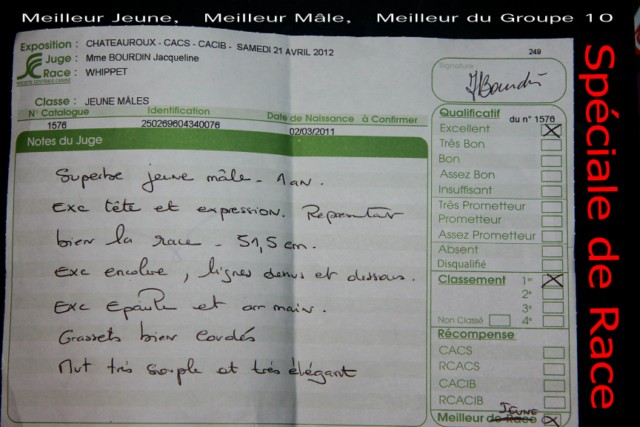 Meilleur Jeune, Meilleur Mâle, Meilleur du Groupe 10
Spéciale de Race
Exposition : CHATEAUROUX - CACS - CACIB - SAMEDI 21 AVRIL 2012
249
Juge : Mme BOURDIN Jacqueline
Race : WHIPPET
Signature
JBourdin
Classe : JEUNE MÂLES
N° Catalogue Identification Date de Naissance à Confirmer
1576 250269604340076 02/03/2011
Notes du Juge
Superbe jeune mâle - 1 an.
Exc tête et expression.
bien la race - 51,5 cm.
Exc encolure, lignes dessus et dessous.
Exc Epaule et arr main.
Grassets bien coudés
Mvt très souple et très élégant
Qualificatif du n° 1576
Excellent X
Très Bon
Bon
Assez Bon
Insuffisant
Très Prometteur
Prometteur
Assez Prometteur
Absent
Disqualifié
Classement 1er X
2e
3e
Non Classé 4e
Récompense
CACS
RCACS
CACIB
RCACIB
JEUNE
Meilleur de Race X